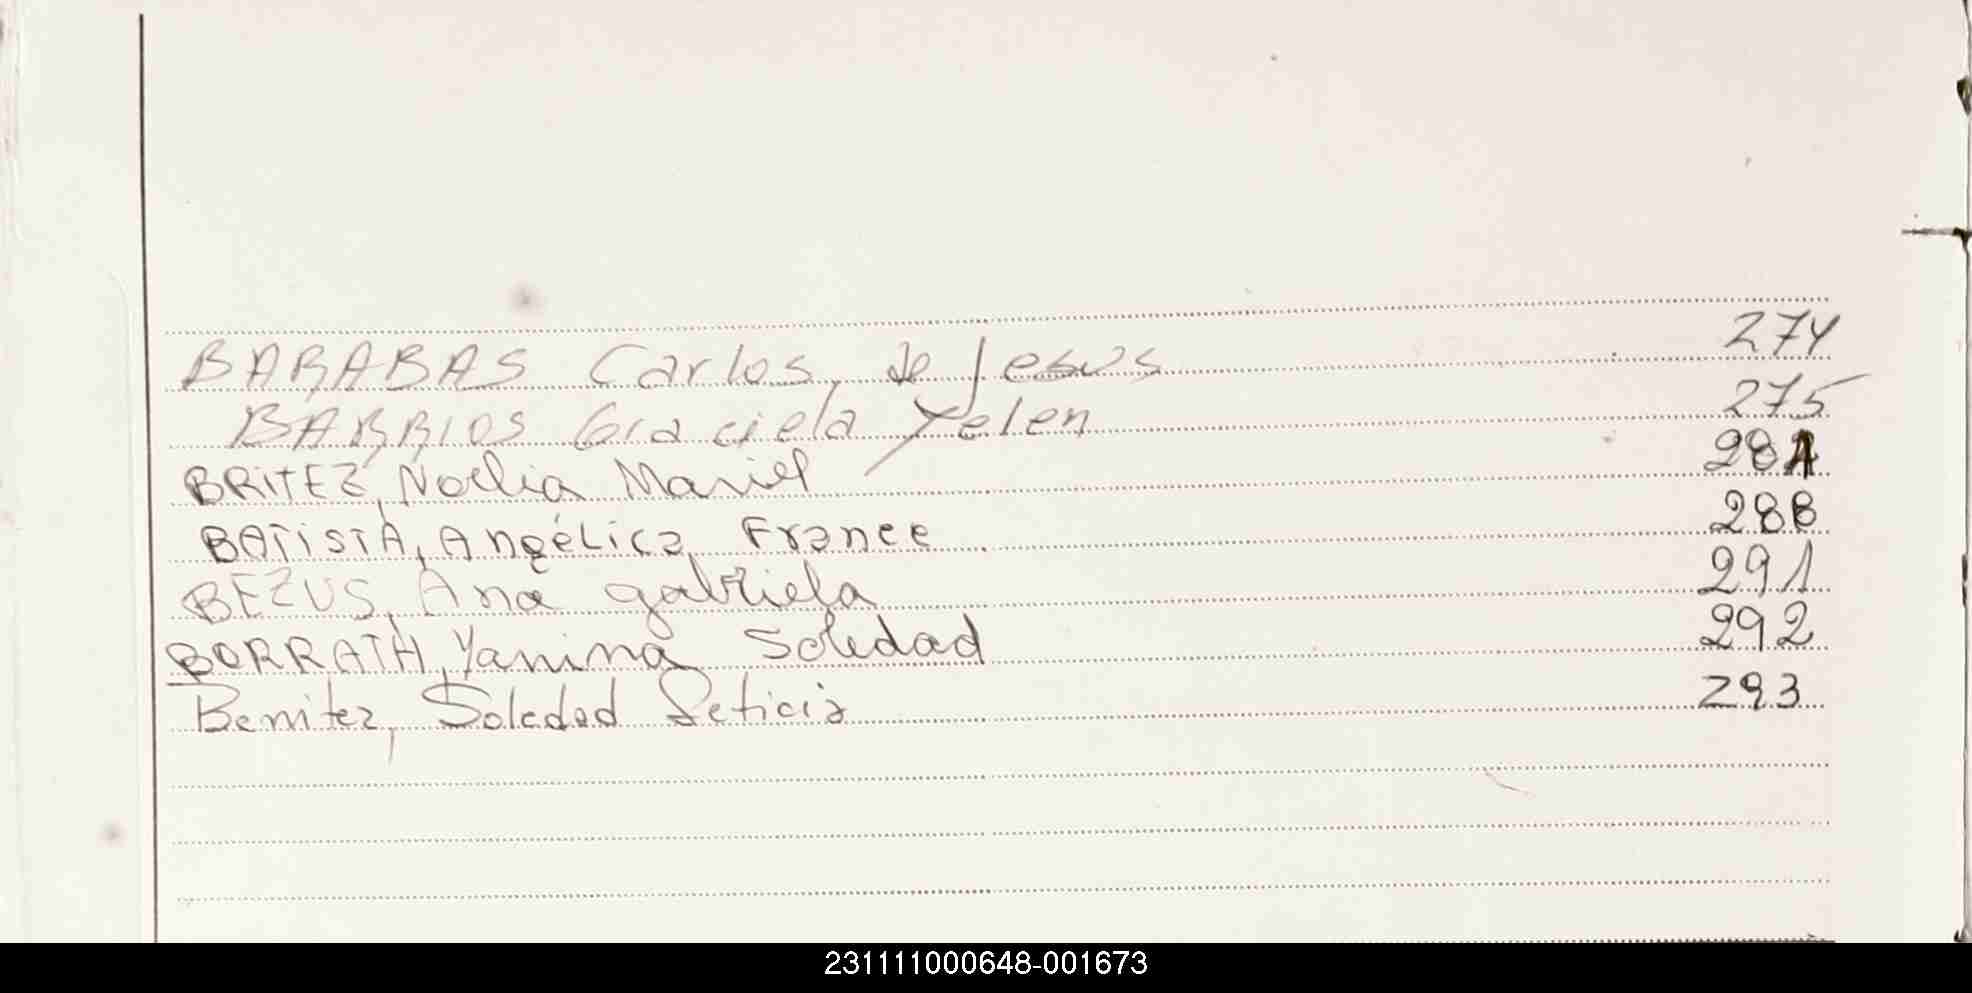 BARABAS Carlos de Jesus 274
BARRIOS Graciela Yelen 275
BRITEZ, Noelia Mariel 281
BATISTA, Angélica France 288
BEZUS, Ana gabriela 291
BORRATH, Yanina Soledad 292
Benitez, Soledad Leticia 293
231111000648-001673